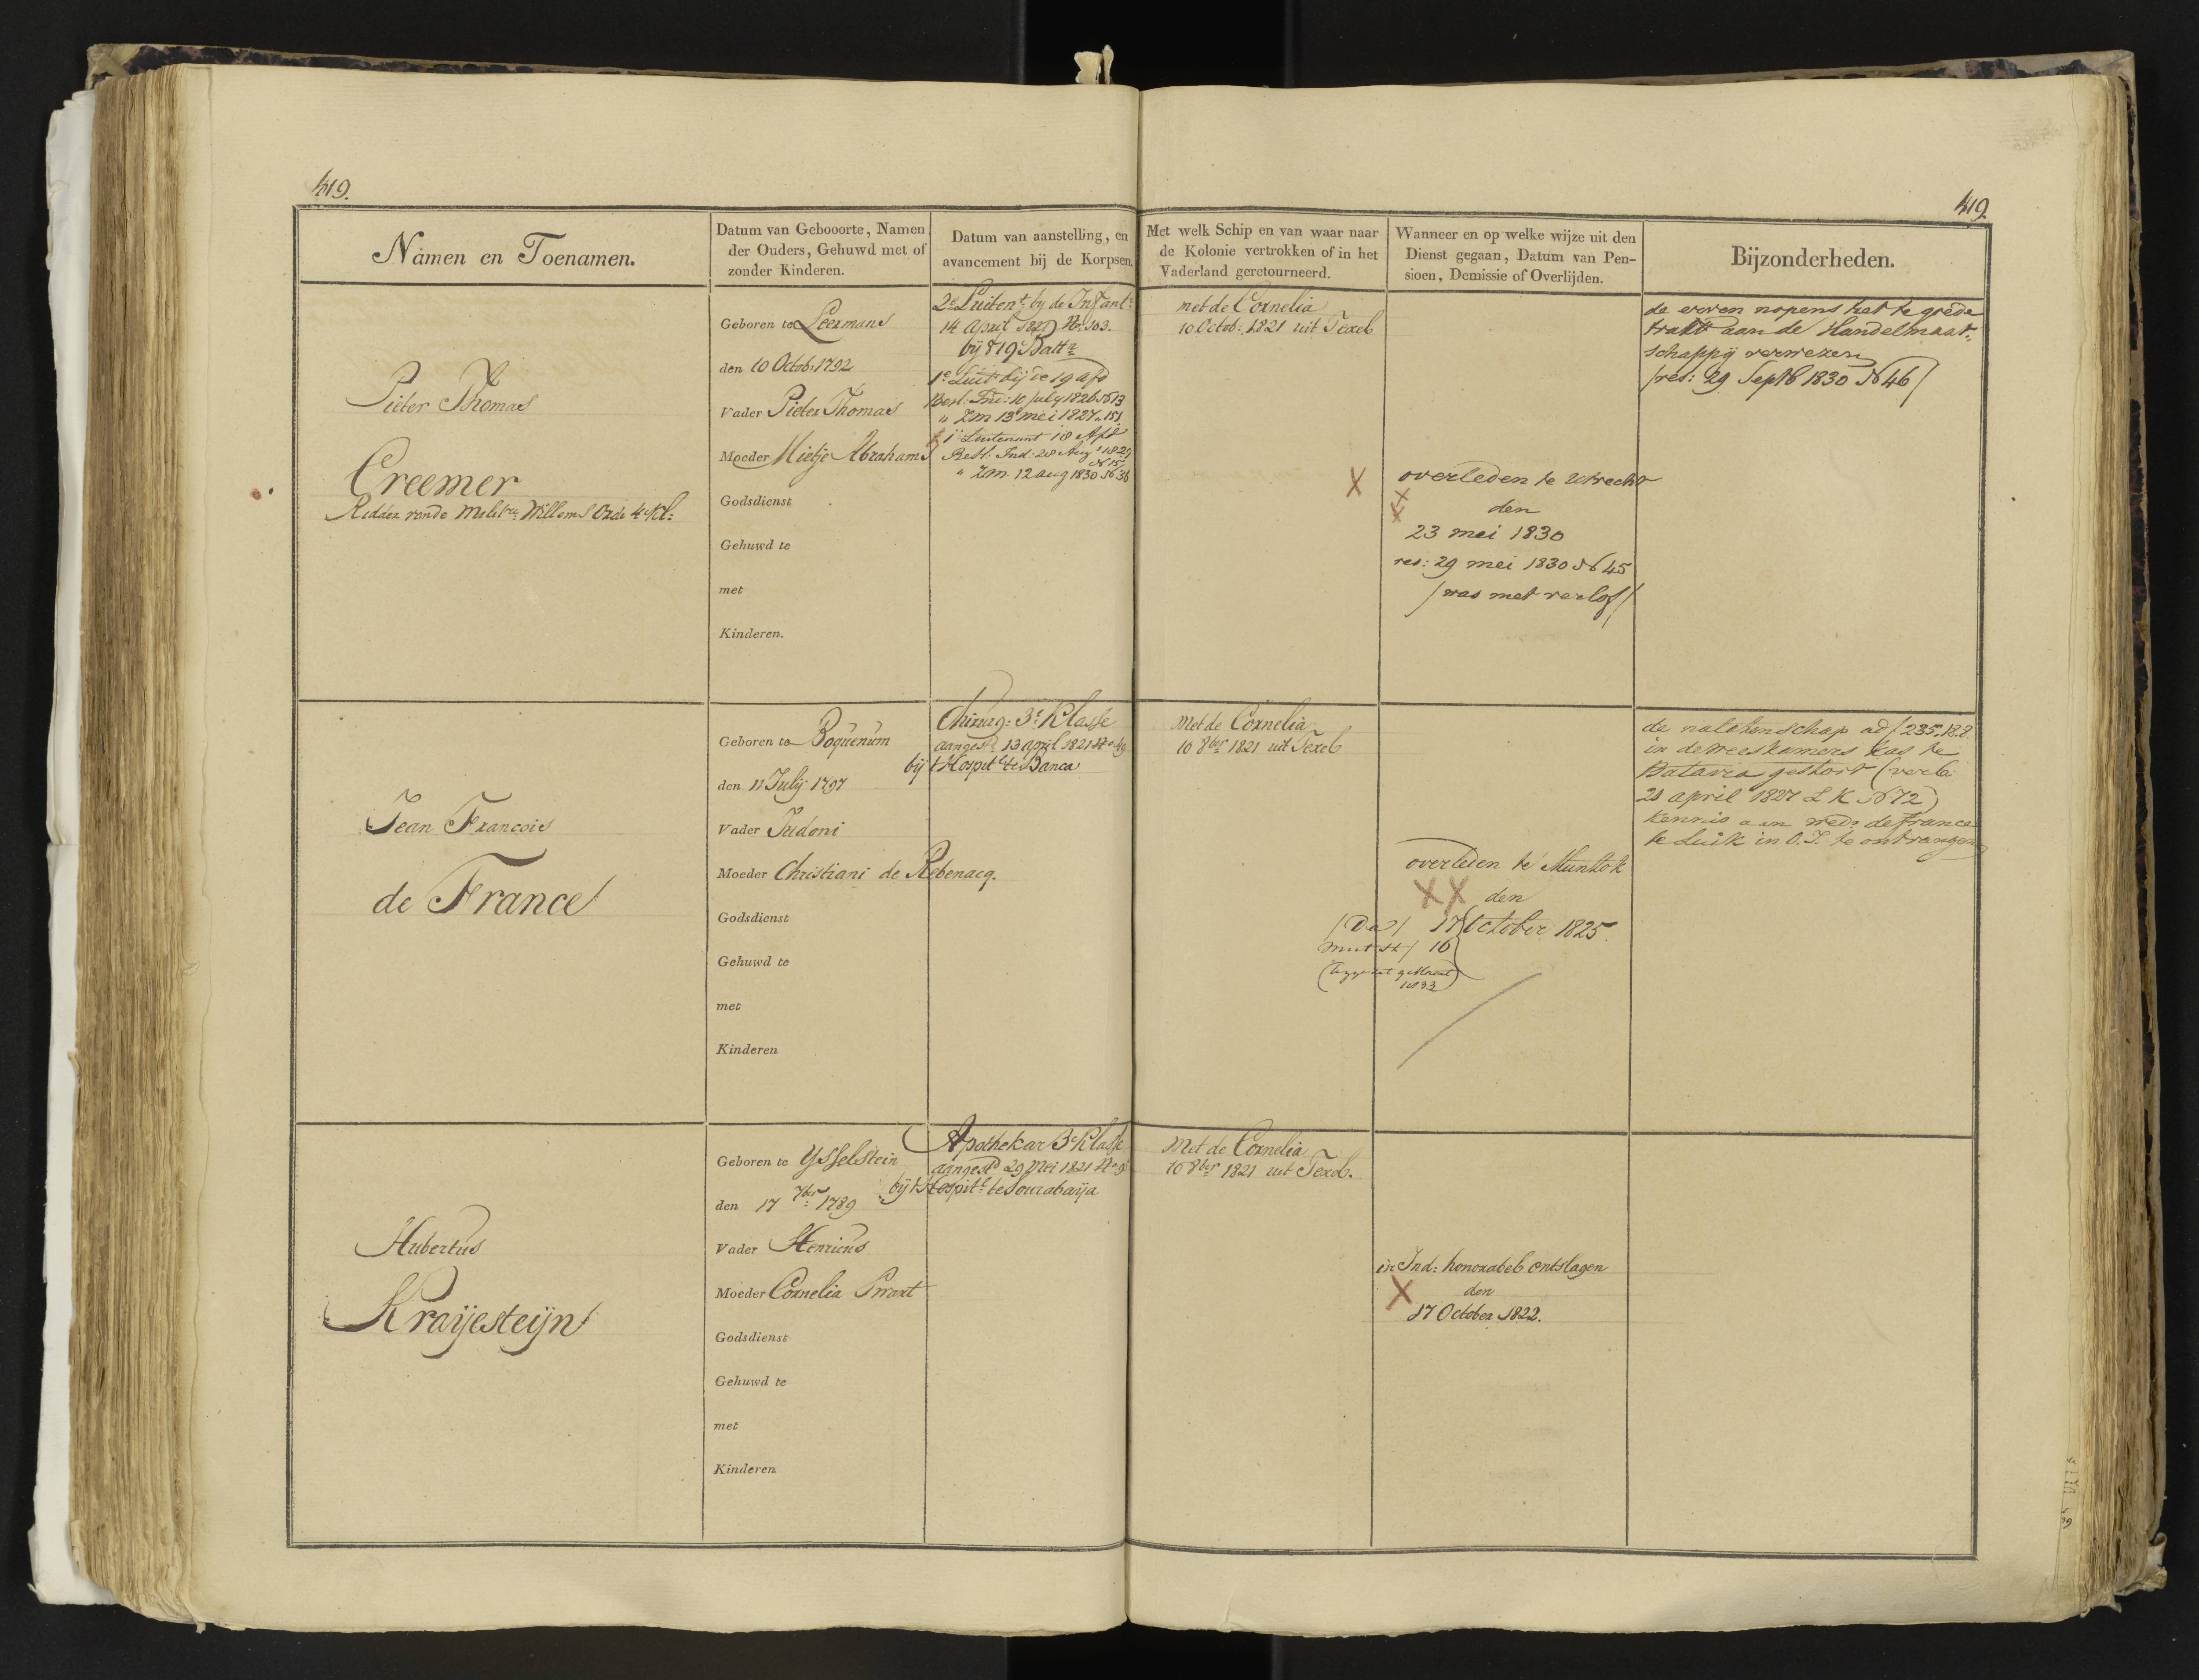 419.
419.
Namen en Toenamen.
Datum van Gebooorte, Namen
der Ouders, Gehuwd met of
zonder Kinderen.
Datum van aanstelling, en
avancement bij de Korpsen.
Met welk Schip en van waar naar
de Kolonie vertrokken of in het
Vaderland geretourneerd.
Wanneer en op welke wijze uit den
Dienst gegaan, Datum van Pen-
sioen, Demissie of Overlijden.
Bijzonderheden.
Pieter Thomas
Creemer
Ridder van de Militre Willems Orde 4e Kl:
Geboren te Leermans
den 10 Octob: 1792
Vader Pieter Thomas
Moeder Mietje Abrahams
Godsdienst
Gehuwd te
met
Kinderen.
2e Luitent by de Infant
14 April No 103.
bij 't 19e Batt
1e Luit bij de 19 afd
Besl. Ind: 10 July 1826 No 13
" Zm 13 mei 1827 " 151
1e Luitenant 18 Afd
Besl. Ind: 28 Aug 1829
No 15
" Zm 12 aug 1830 No 36
met de Cornelia
10 Octob: 1821 uit Texel
overleden te Utrecht
den
23 mei 1830
res: 29 mei 1830 No 45
/was met verlof/
de erven nopens het te goede
trakt aan de Handelmaat-
schappij verwezen
/res: 29 Septb 1830 No 46/
Jean Francois
de France
Geboren te Boquenum
den 11 July 1797
Vader Judoni
Moeder Christiani de Rebenacq.
Godsdienst
Gehuwd te
met
Kinderen
Chirurg: 3e Klasse
aangesd 13 april 1821 No 49
bij t Hospitl te Banca
Met de Cornelia
10 8ber 1821 uit Texel
overleden te Muntok
den
17 October 1825.
16
1833
de nalatenschap ad f 235.18.8
in de weeskamers kas te
Batavia gestort (verb:
20 april 1827 L K No 72)
kennis aan wed: de france
te Luik in O.I. te ontvangen
Hubertus
Kraijesteijn
Geboren te Ysselstein
den 17 7ber 1789
Vader Henricus
Moeder Cornelia
Godsdienst
Gehuwd te
met
Kinderen
Apothekar 3e Klasse
aangesd 29 Mei 1821 No 9
bij t Hospitl te Sourabaija
Met de Cornelia
10 8ber 1821 uit Texel.
in Ind: honorabel ontslagen
den
17 October 1822.